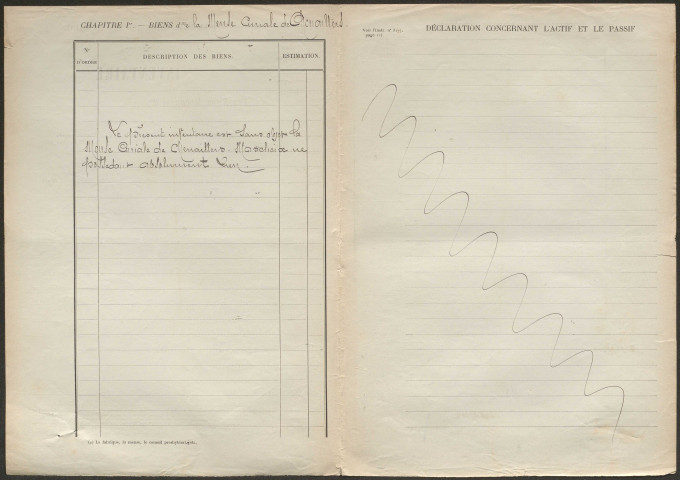 CHAPITRE Ier. — BIENS de la Mense Curiale de Chenaillers
Nº D'ORDRE
DESCRIPTION DES BIENS.
ESTIMATION.
Le présent inventaire est sans objet la
Mense Curiale de Chenaillers-Mascheix ne
possédant absolument rien.
(1) La fabrique, la mense, le conseil presbytéral.
DÉCLARATION CONCERNANT L'ACTIF ET LE PASSIF